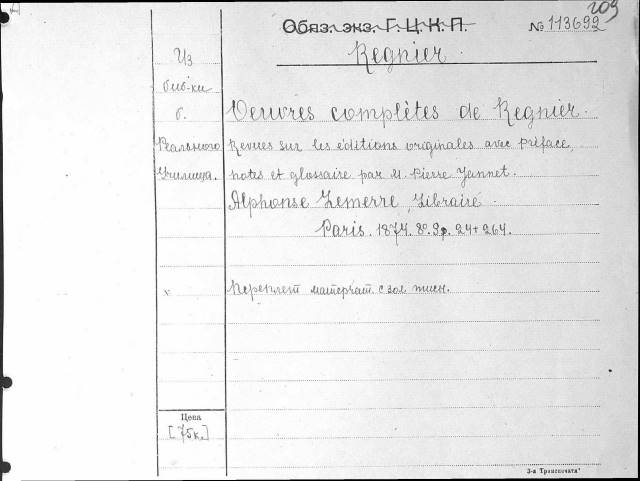 203
Обяз. экз. Г. Ц. К. П. № 113692
Regnier.
Из
биб-ки
б.
Реального
Училища.
Oeuvres complètes de Regnier.
Revues sur les éditions originales avec préface,
notes et glossaire par M. Pierre Jannet.
Alphonse Lemerre, Libraire
Paris. 1874. 8º. 24+264.
Переплет матерчат. с зол. тисн.
Цена
[75к.]
3-я Транспечати